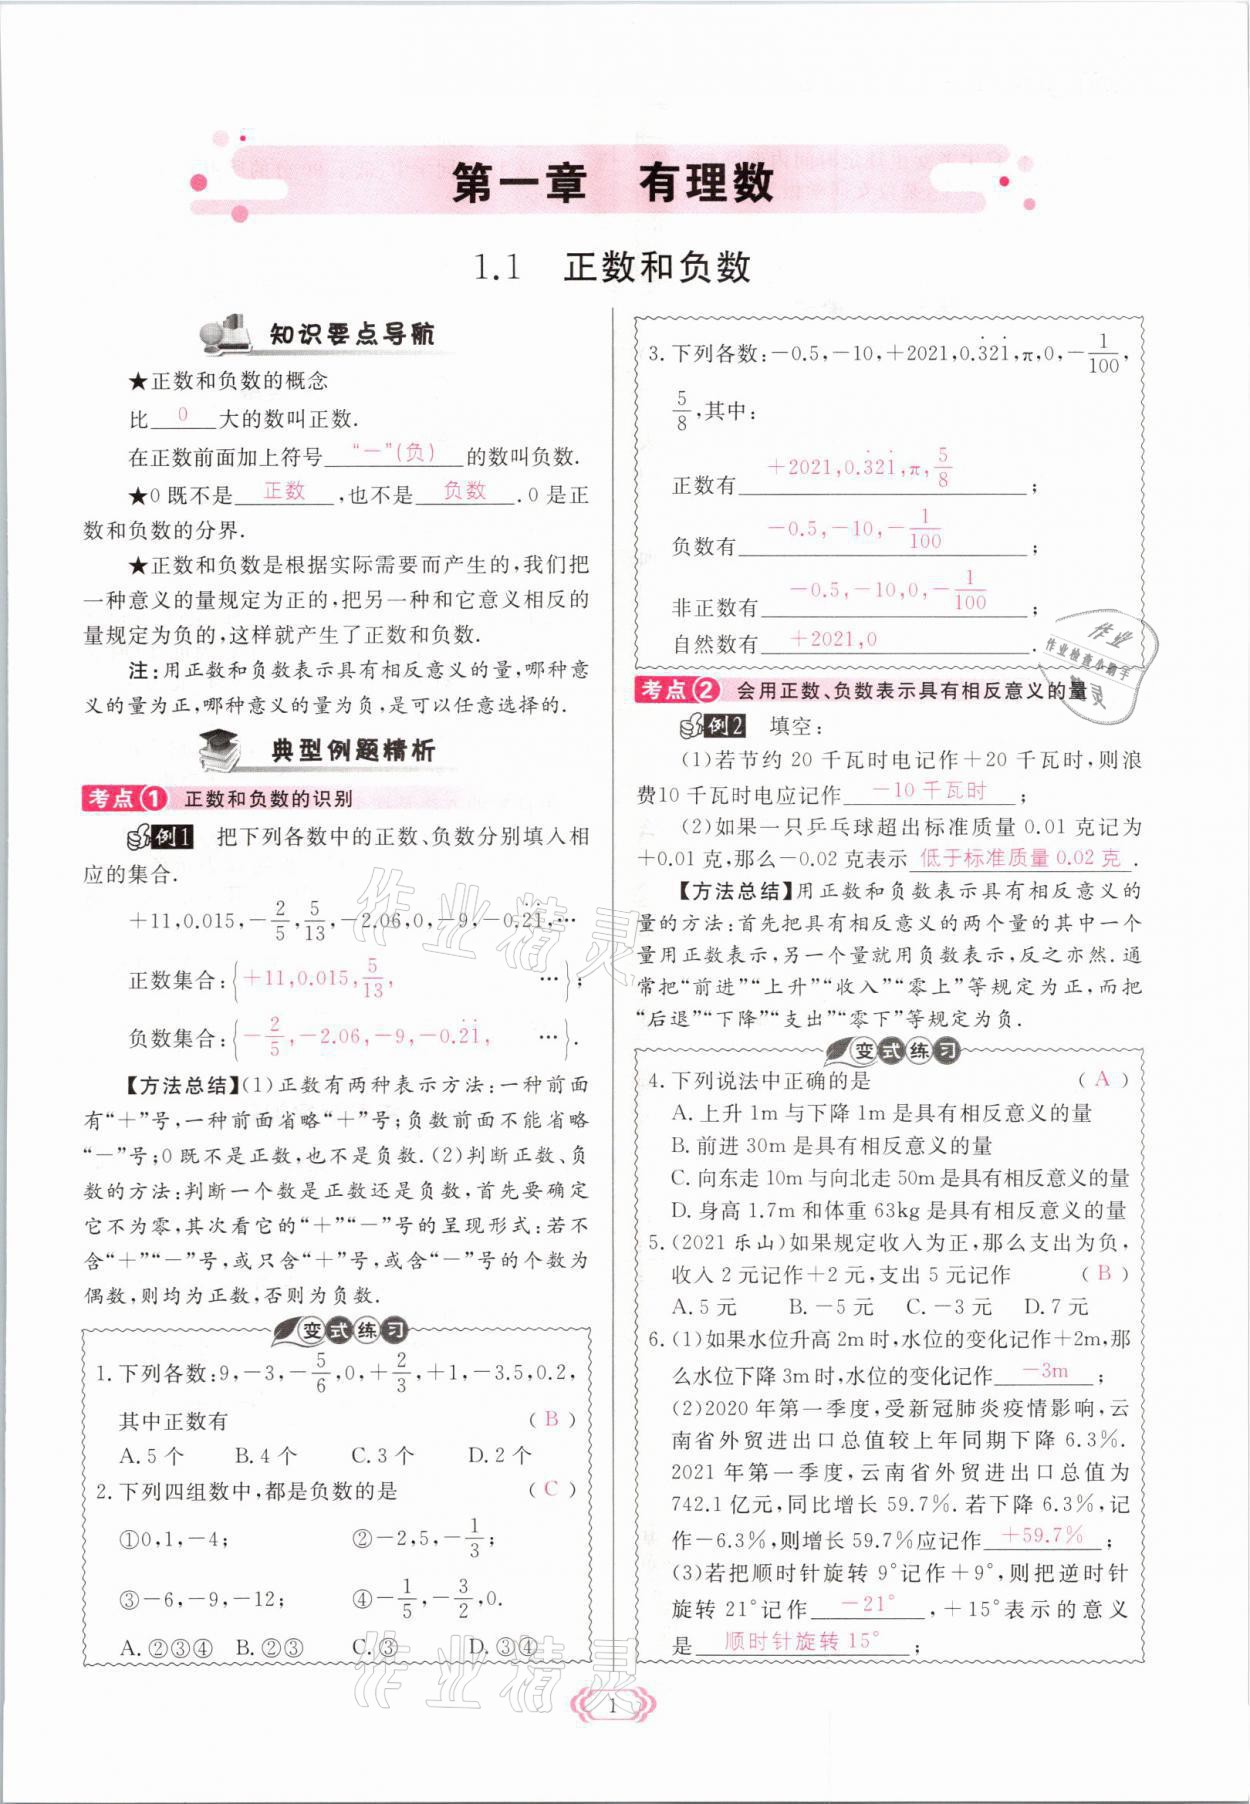 第一章 有理数
1.1 正数和负数
知识要点导航
★正数和负数的概念
比 0 大的数叫正数.
在正数前面加上符号 “－”(负) 的数叫负数.
★0 既不是 正数 ,也不是 负数 .0 是正
数和负数的分界.
★正数和负数是根据实际需要而产生的,我们把
一种意义的量规定为正的,把另一种和它意义相反的
量规定为负的,这样就产生了正数和负数.
注:用正数和负数表示具有相反意义的量,哪种意
义的量为正,哪种意义的量为负,是可以任意选择的.
典型例题精析
考点1 正数和负数的识别
例1 把下列各数中的正数、负数分别填入相
应的集合.
+11,0.015,-2/5,5/13,-2.06,0,-9,-0.2̇1̇,…
正数集合:{+11,0.015,5/13, …};
负数集合:{-2/5,-2.06,-9,-0.2̇1̇, …}.
【方法总结】(1)正数有两种表示方法:一种前面
有“+”号,一种前面省略“+”号;负数前面不能省略
“-”号;0 既不是正数,也不是负数.(2)判断正数、负
数的方法:判断一个数是正数还是负数,首先要确定
它不为零,其次看它的“+”“-”号的呈现形式:若不
含“+”“-”号,或只含“+”号,或含“-”号的个数为
偶数,则均为正数,否则为负数.
变式练习
1.下列各数:9,-3,-5/6,0,+2/3,+1,-3.5,0.2,
其中正数有 ( B )
A.5个 B.4个 C.3个 D.2个
2.下列四组数中,都是负数的是 ( C )
①0,1,-4; ②-2,5,-1/3;
③-6,-9,-12; ④-1/5,-3/2,0.
A.②③④ B.②③ C.③ D.③④
3.下列各数:-0.5,-10,+2021,0.3̇21̇,π,0,-1/100,
5/8,其中:
正数有 +2021,0.3̇21̇,π,5/8 ;
负数有 -0.5,-10,-1/100 ;
非正数有 -0.5,-10,0,-1/100 ;
自然数有 +2021,0 .
考点2 会用正数、负数表示具有相反意义的量
例2 填空:
(1)若节约 20 千瓦时电记作+20 千瓦时,则浪
费10 千瓦时电应记作 -10 千瓦时 ;
(2)如果一只乒乓球超出标准质量 0.01 克记为
+0.01 克,那么-0.02 克表示 低于标准质量 0.02 克 .
【方法总结】用正数和负数表示具有相反意义的
量的方法:首先把具有相反意义的两个量的其中一个
量用正数表示,另一个量就用负数表示,反之亦然.通
常把“前进”“上升”“收入”“零上”等规定为正,而把
“后退”“下降”“支出”“零下”等规定为负.
变式练习
4.下列说法中正确的是 ( A )
A.上升 1m 与下降 1m 是具有相反意义的量
B.前进 30m 是具有相反意义的量
C.向东走 10m 与向北走 50m 是具有相反意义的量
D.身高 1.7m 和体重 63kg 是具有相反意义的量
5.(2021 乐山)如果规定收入为正,那么支出为负,
收入 2 元记作+2 元,支出 5 元记作 ( B )
A.5 元 B.-5 元 C.-3 元 D.7 元
6.(1)如果水位升高 2m 时,水位的变化记作+2m,那
么水位下降 3m 时,水位的变化记作 -3m ;
(2)2020 年第一季度,受新冠肺炎疫情影响,云
南省外贸进出口总值较上年同期下降 6.3%.
2021 年第一季度,云南省外贸进出口总值为
742.1 亿元,同比增长 59.7%.若下降 6.3%,记
作-6.3%,则增长 59.7%应记作 +59.7% ;
(3)若把顺时针旋转 9°记作+9°,则把逆时针
旋转 21°记作 -21° ,+15°表示的意义
是 顺时针旋转 15° ;
作业
作业检查小助手
作业精灵
作业精灵
1